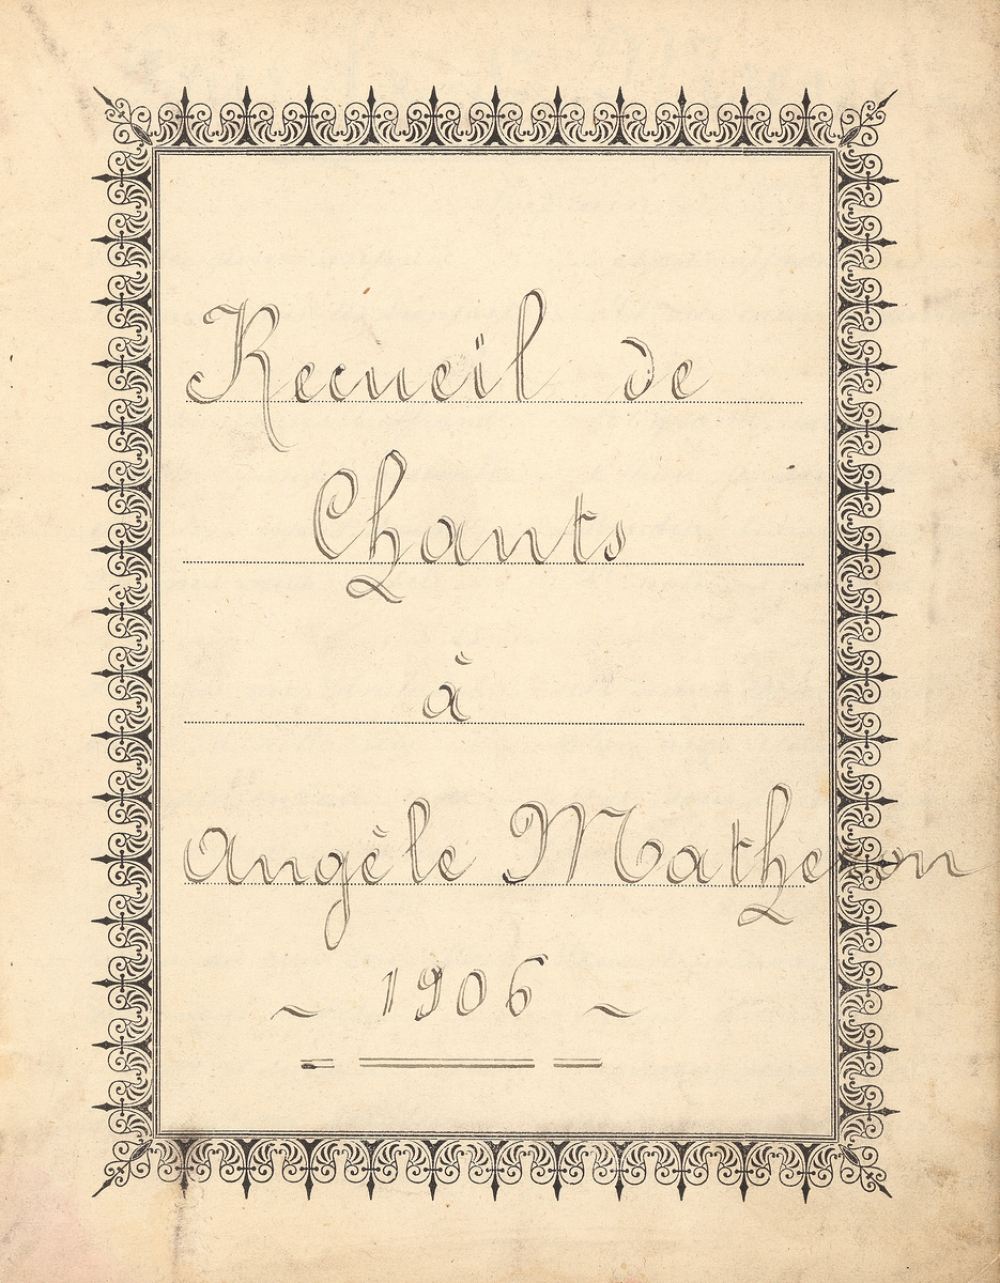 Recueïl de
Chants
à
Angèle Matheron
~ 1906 ~